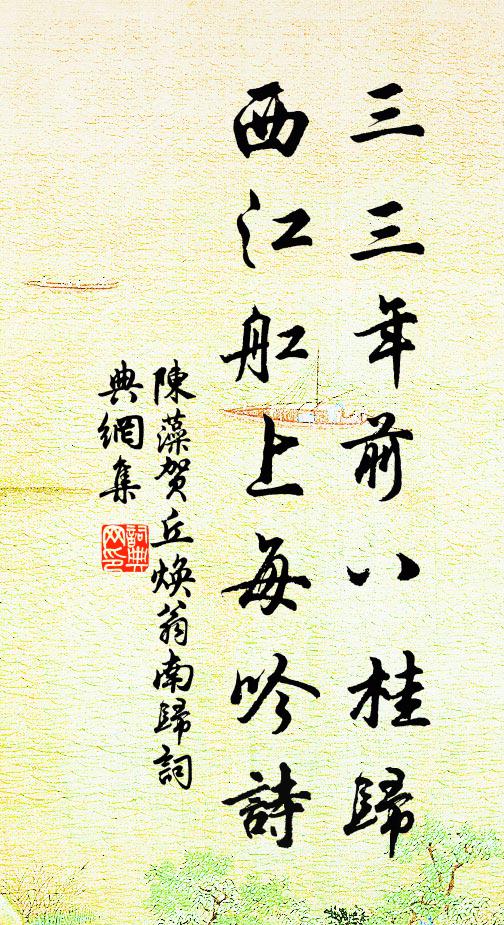 三三年前八桂歸
西江舡上每吟詩
陳藻賀丘煥翁南歸詞
典網集
詞典网印